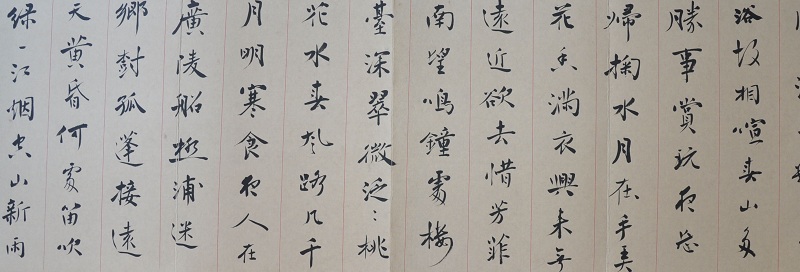 浴故相喧春山多
勝事賞玩夜忘
歸掬水月在手弄
花香滿衣興來無
遠近欲去惜芳菲
南望鳴鐘處樓
臺深翠微泛〻桃
花水春風路几千
月明寒食夜人在
廣陵船極浦迷
鄉樹孤蓬接遠
天黃昏何處笛吹
綠一江烟空山新雨